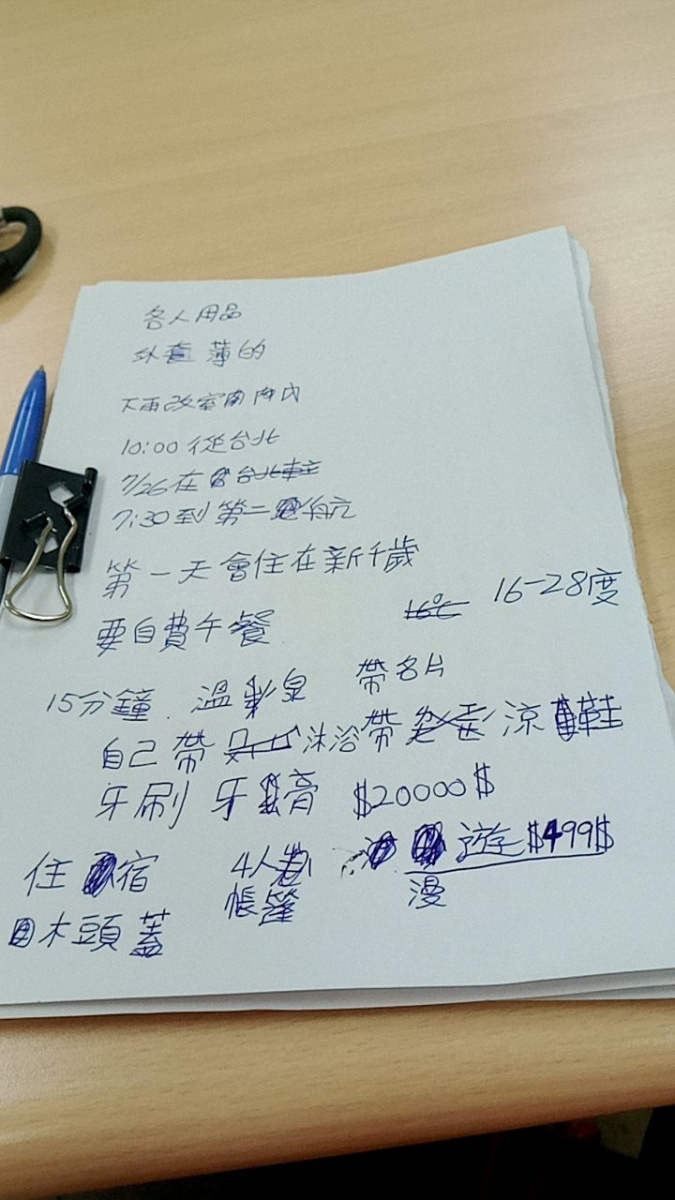 各人用品
外套 薄的
下雨改室內
10:00 從台北
7/26 在 台北車主
7:30 到 第二航
第一天會住在新千歲
16℃ 16-28度
要自費午餐
15分鐘 溫泉 帶名片
自己帶 沐浴帶 涼鞋
牙刷 牙膏 $20000$
住宿 4人 遊$499$
帳篷 漫
木頭蓋